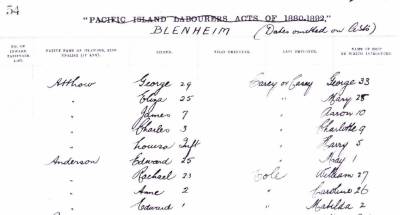 54
"PACIFIC ISLAND LABOURERS ACTS OF 1880-1892."
BLENHEIM (Dates omitted on lists)
NATIVE NAME OF ISLANDER, ALSO ENGLISH (IF ANY). ISLAND. FIRST EMPLOYER. LAST EMPLOYER. NAME OF SHIP BY WHICH INTRODUCED.
Atthow George 29 Carey or Casey George 33
" Eliza 25 " Mary 28
" James 7 " Aaron 10
" Charles 3 " Charlotte 9
" Louisa Inft " Harry 5
Anderson Edward 25 " May 1
" Rachael 23 Cole William 27
" Anne 2 " Caroline 26
" Edward 1 " Matilda 2